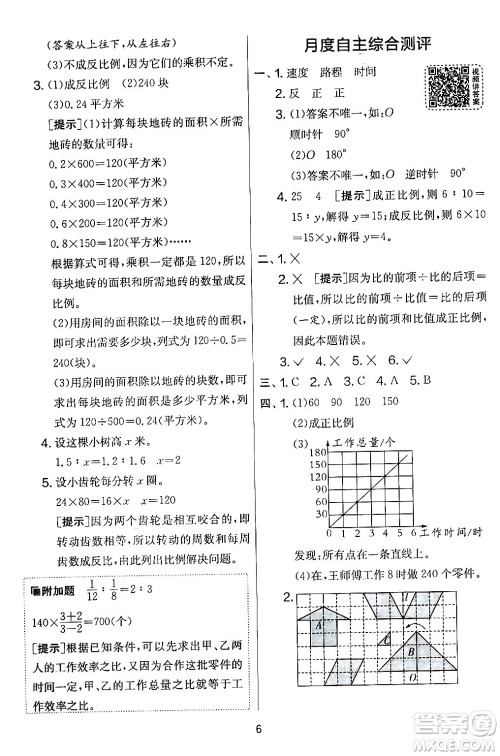 (答案从上往下、从左往右)
(3)不成反比例，因为它们的乘积不定。
3. (1)成反比例 (2)240块
(3)0.24平方米
[提示](1)计算每块地砖的面积×所需
地砖的数量可得：
0.2×600=120(平方米)
0.3×400=120(平方米)
0.4×300=120(平方米)
0.6×200=120(平方米)
0.8×150=120(平方米)……
根据算式可得，乘积一定都是120，所以
每块地砖的面积和所需地砖的数量成反
比例。
(2)用房间的面积除以一块地砖的面积，
即可求出所需的块数，列式为120÷0.5=
240(块)
(3)用房间的面积除以地砖的块数，即可
求出每块地砖的面积是多少平方米，列式
为120÷500=0.24(平方米)。
4. 设这棵小树高x米。
1.5∶x=1.2∶2 x=2.5
5. 设小齿轮每分转x圈。
24×80=16×x x=120
[提示]因为两个齿轮是相互咬合的，即
转动齿数相等，所以转动的周数和每周
齿数成反比，由此列出比例解决问题。
附加题 1/12∶1/8=2∶3
140×(3+2)/(3-2)=700(个)
[提示]根据已知条件，可以先求出甲、乙两
人的工作效率之比，又因为合作这批零件的
时间一定，甲、乙的工作总量之比就等于工
作效率之比。
月度自主综合测评
视频讲答案
一、1. 速度 路程 时间
2. 反 正 正
3. (1)答案不唯一，如：O
顺时针 90°
(2)O 180°
(3)答案不唯一，如：O 逆时针 90°
4. 25 4 [提示]成正比例，则6∶10
=15∶y，解得y=25；成反比例，则6×10
=15×y，解得y=4。
二、1. ×
2. × [提示]因为比的前项÷比的后项=
比值(一定)，所以比的前项和比值成正比例，
因此本题错误。
3. √ 4. × 5. × 6. √
三、1. C 2. A 3. C 4. A 5. B
四、1. (1)60 90 120 150
(2)成正比例
(3) 工作总量/个
180
150
120
90
60
30
0 1 2 3 4 5 6 工作时间/时
发现：所有点在一条直线上。
(4)在，王师傅工作8时做240个零件。
2.
A
B
O
6